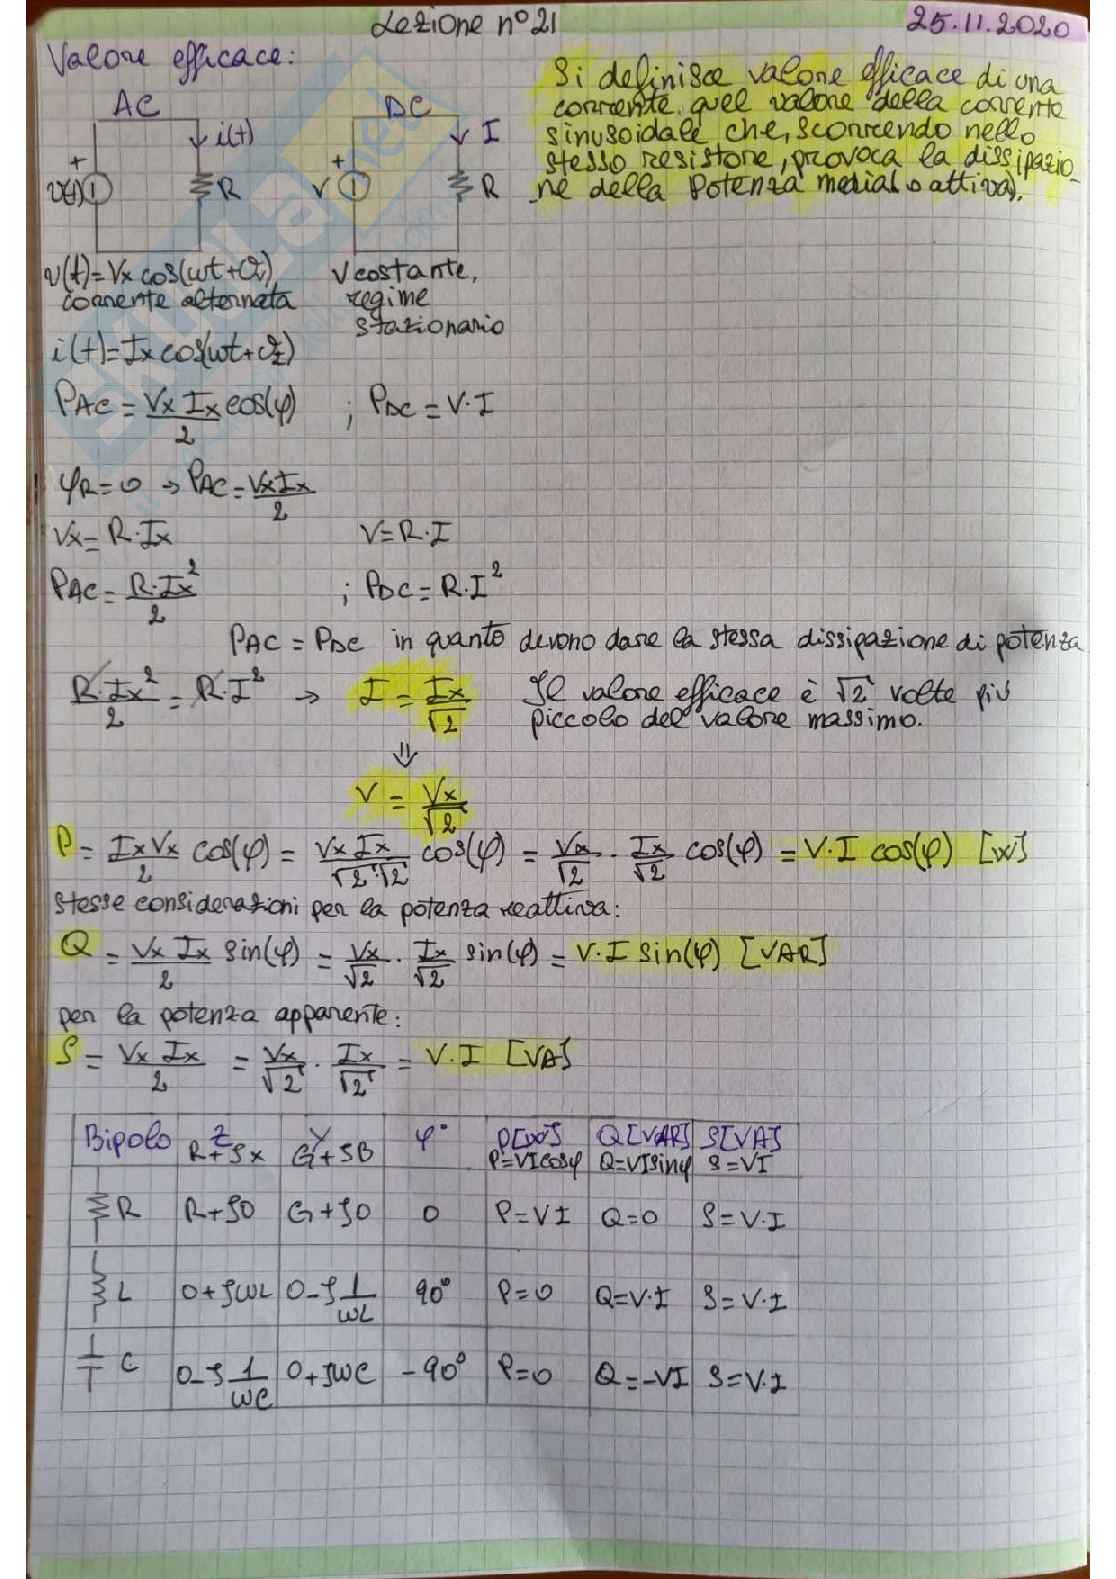 Lezione n°21
25.11.2020
Valore efficace:
AC
DC
i(t)
I
+
+
v(t)
R
V
R
Si definisce valore efficace di una
corrente, quel valore della corrente
sinusoidale che, scorrendo nello
stesso resistore, provoca la dissipazio-
ne della Potenza media(o attiva).
V costante,
corrente alternata
regime
stazionario
PAC = Vx Ix/2 cos(φ) ; PDC = V·I
φR = 0 → PAC = Vx Ix/2
Vx = R·Ix V = R·I
PAC = R·Ix²/2 ; PDC = R·I²
PAC = PDC in quanto devono dare la stessa dissipazione di potenza
R·Ix²/2 = R·I² → I = Ix/√2 Il valore efficace è √2 volte più
piccolo del valore massimo.
⇓
V = Vx/√2
P = Ix Vx/2 cos(φ) = Vx Ix/√2·√2 cos(φ) = Vx/√2 · Ix/√2 cos(φ) = V·I cos(φ) [W]
stesse considerazioni per la potenza reattiva:
Q = Vx Ix/2 sin(φ) = Vx/√2 · Ix/√2 sin(φ) = V·I sin(φ) [VAR]
per la potenza apparente:
S = Vx Ix/2 = Vx/√2 · Ix/√2 = V·I [VA]
Bipolo Z Y φ° P[W] Q[VAR] S[VA]
R+jx G+jB P=VIcosφ Q=VIsinφ S=VI
R R+j0 G+j0 0 P=VI Q=0 S=V·I
L 0+jωL 0-j 1/ωL 90° P=0 Q=V·I S=V·I
C 0-j 1/ωC 0+jωC -90° P=0 Q=-VI S=V·I